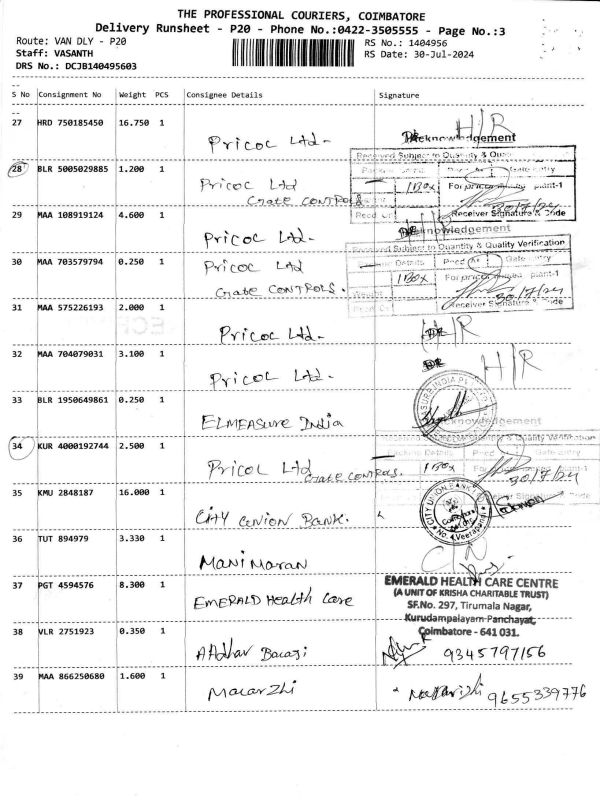 THE PROFESSIONAL COURIERS, COIMBATORE
Delivery Runsheet - P20 - Phone No.:0422-3505555 - Page No.:3
Route: VAN DLY - P20
RS No.: 1404956
Staff: VASANTH
RS Date: 30-Jul-2024
DRS No.: DCJB140495603
S No Consignment No Weight PCS Consignee Details Signature
27 HRD 750185450 16.750 1 Pricoc Ltd- H/R
Acknowledgement
Received Subject to Quantity &
28 BLR 5005029885 1.200 1 Pricoc Ltd
Gate CONTROLS
Gate Entry
1 Box For plant-1
30/7/24
Receiver Signature &
29 MAA 108919124 4.600 1 Pricoc Ltd-
Acknowledgement
Received Subject to Quantity & Quality Verification
30 MAA 703579794 0.250 1 Pricoc Ltd
Gate CONTROLS.
Details Gate Entry
1 Box For plant-1
30/7/24
Receiver Signature & Code
31 MAA 575226193 2.000 1 Pricoc Ltd- H/R
32 MAA 704079031 3.100 1 Pricoc Ltd- H/R
33 BLR 1950649861 0.250 1 ELMEASURE India
Acknowledgement
Quantity & Quality Verification
34 KUR 4000192744 2.500 1 Pricoc Ltd Gate CONTROLS.
1 Box
30/7/24
Receiver
35 KMU 2848187 16.000 1 CITY Union BANK.
CITY UNION BANK
Coimbatore
No. 4, Veerapandi
36 TUT 894979 3.330 1 Manimaran
37 PGT 4594576 8.300 1 EMERALD Health Care
EMERALD HEALTH CARE CENTRE
(A UNIT OF KRISHA CHARITABLE TRUST)
SF.No. 297, Tirumala Nagar,
Kurudampalayam Panchayat,
Coimbatore - 641 031.
38 VLR 2751923 0.350 1 9345797156
39 MAA 866250680 1.600 1 Malarzhi 9655339776